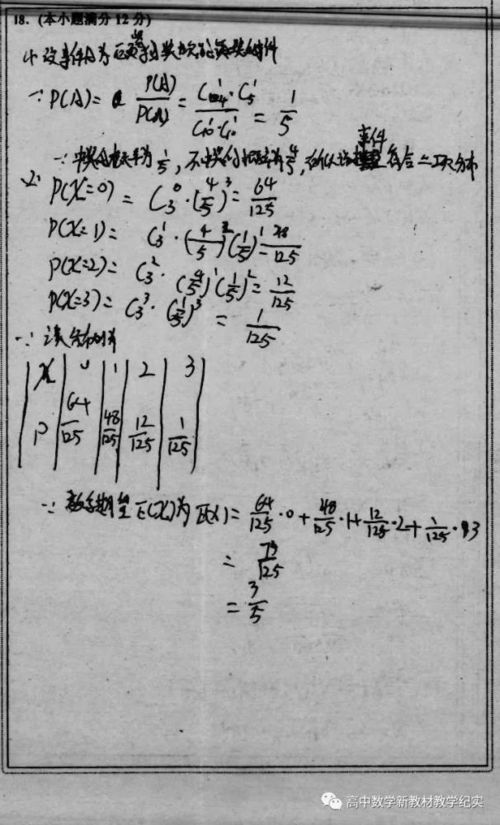 18. (本小题满分 12 分)
设事件A为
∵ P(A) = P(A)/P(A) = C¹₄·C¹₅/C¹₁₀·C¹₁₀ = 1/5
事件
∵ 中奖的概率为 1/5, 不中奖的概率为 4/5, 符合二项分布
P(X=0) = C₃⁰·(4/5)³ = 64/125
P(X=1) = C₃¹·(4/5)²(1/5)¹ = 48/125
P(X=2) = C₃²·(4/5)¹(1/5)² = 12/125
P(X=3) = C₃³·(1/5)³ = 1/125
∵ 该分布列为
X 0 1 2 3
P 64/125 48/125 12/125 1/125
∵ 数学期望 E(X)为 E(X) = 64/125·0 + 48/125·1 + 12/125·2 + 1/125·3
= 75/125
= 3/5
高中数学新教材教学纪实